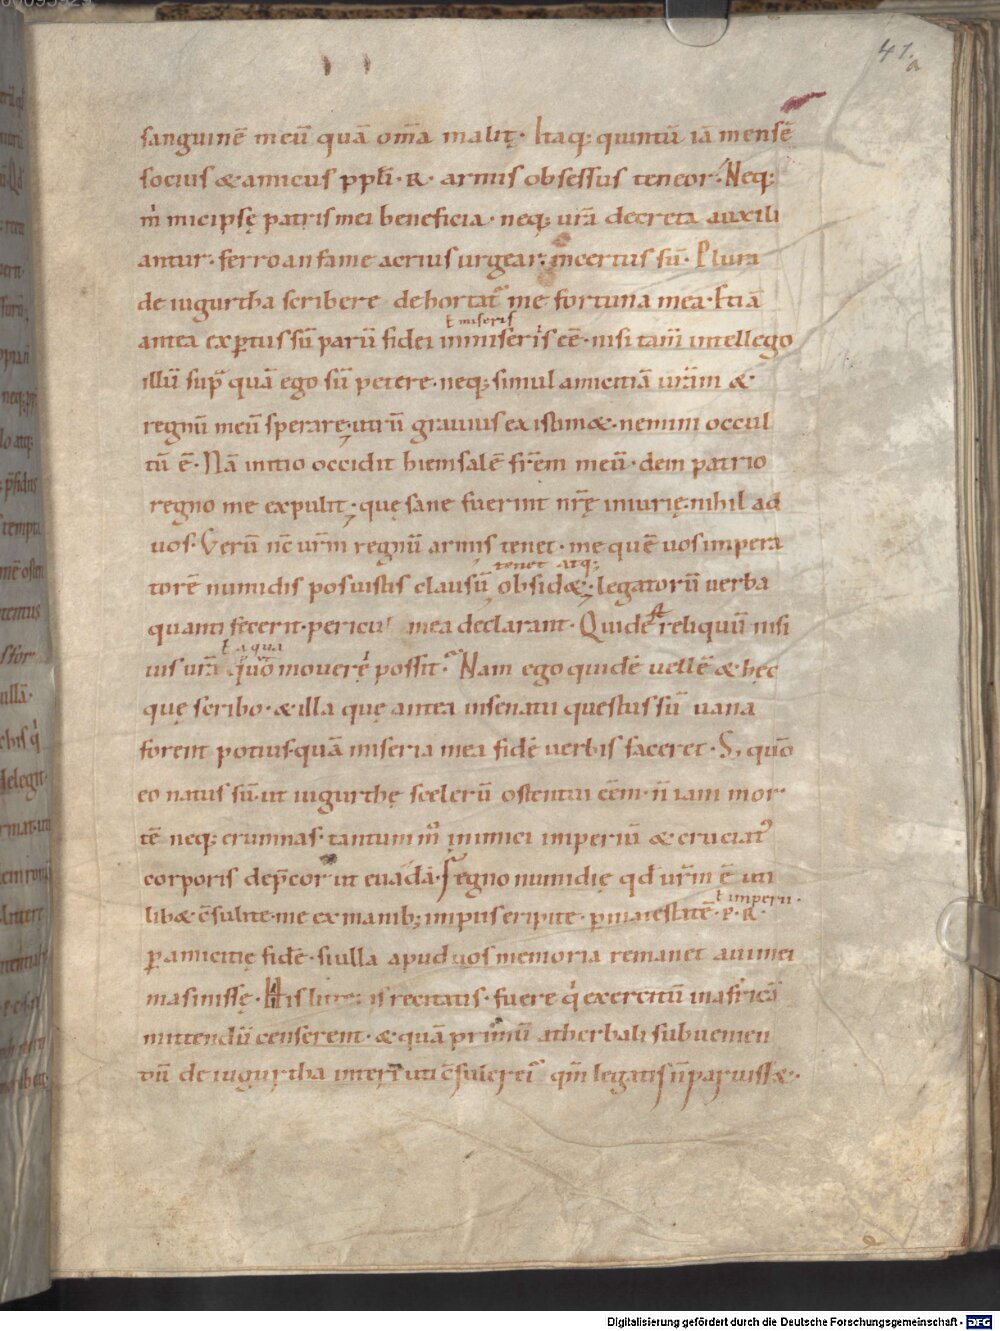 41.
a
sanguinē meū quā om̄a malit̨. Itaq; quintū iā mensē
socius & amicus ppłi. R. armis obsessus teneor. Neq;
m̍ micipsę patris mei beneficia. neq; ur̄a decreta auxili
antur. ferro an fame acrius urgear, incertus sū. Plura
de iugurtha scribere dehortat᷑ me fortuna mea. Etiā
ł miseris
antea exptus sū parū fidei inmiseris eē. nisi tam̄ intellego
illū sup̄ quā ego sū petere. neq; simul amicitiā ur̄am &
regnū meū sperare, utrū gravius existim&. nemini occul
tū ē. Nā initio occidit hiemsalē fr̄em meū. dein patrio
regno me expulit. quę sane fuerint nr̄ę iniurię. nihil ad
uos. Verū nc̄ ur̄m regnū armis tenet. me quē uos impera
tenet atq;
torē numidis posuistis clausū obsid&. legatorū uerba
quanti fecerit. pericul mea declarant. Quid ē reliquū nisi
ł a qua
uis ur̄a quo moverę possit. Nam ego quidē vellē & hęc
quę scribo. & illa quę antea insenatu questus sū uana
forent potius. quā miseria mea fidē uerbis faceret. S; quō
eo natus sū. ut iugurthę scelerū ostentui eēm. n̄ iam mor
tē neq; erumnas. tantum m̊ inimici imperiū & cruciat᷒
corporis dep̄cor ut euadā. Regno numidię qd̄ ur̄m ē uti
ł imperii.
lib& c̄sulite. me ex manib; impiis eripite. p maiestatē. P. R.
p amicitię fidē. si ulla apud uos memoria remanet aui mei
masinissę. His litteris recitatis. fuere q̍ exercitū in africā
mittendū censerent. & quā primū atherbali subuenien
dū. de iugurtha interī uti c̄suleret᷑ qm̄ legatis n̄ paruiss&.
Digitalisierung gefördert durch die Deutsche Forschungsgemeinschaft - DFG